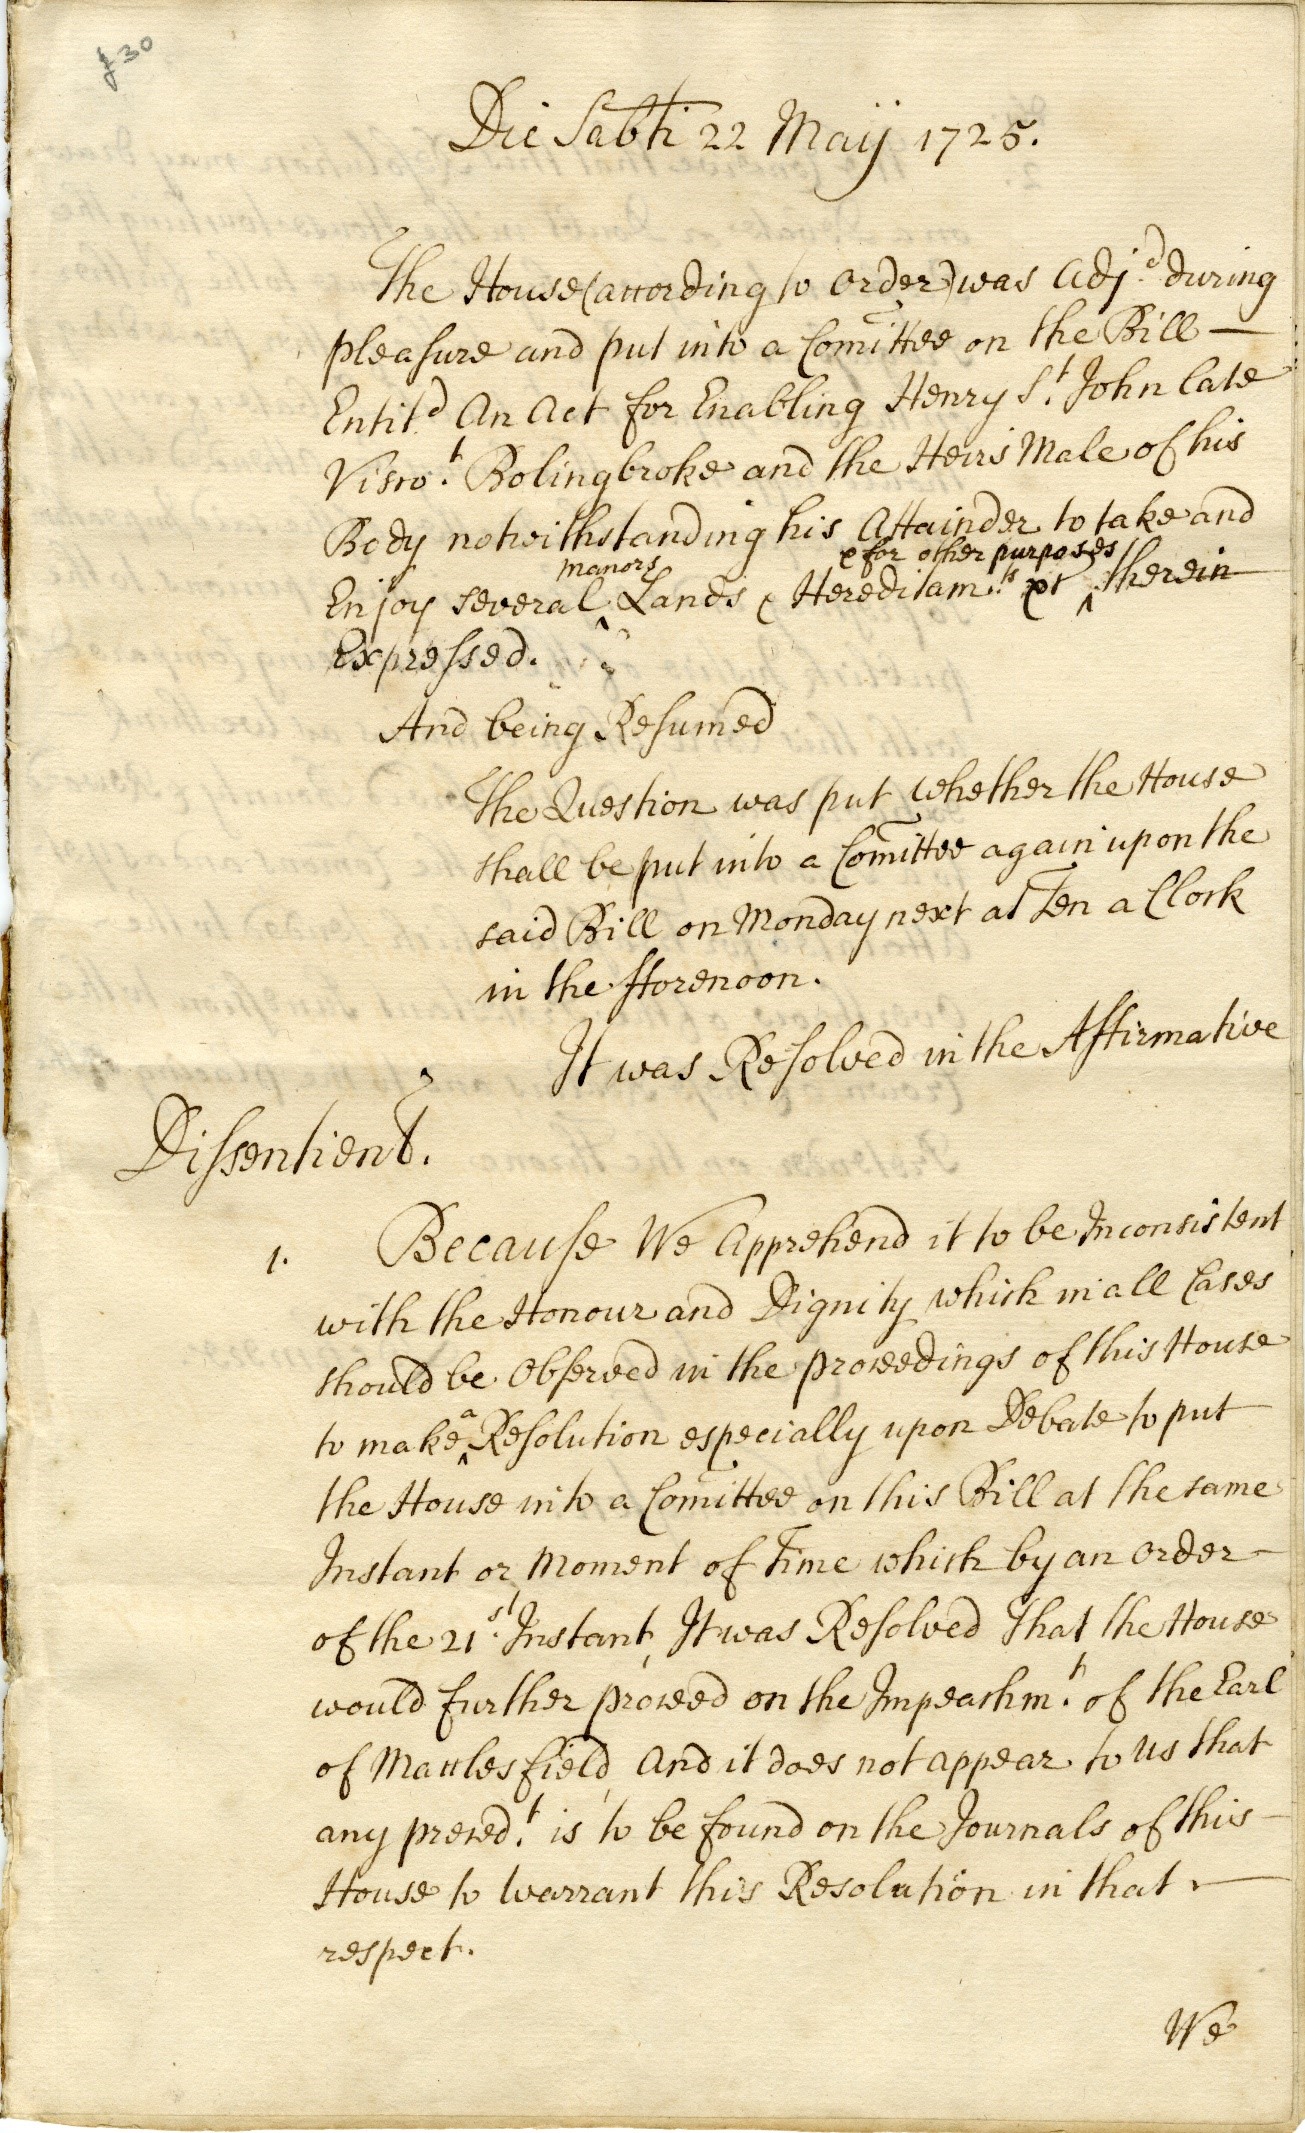 £30
Die Sabti 22 Maij 1725.
The House (according to order) was Adj.d during
pleasure and put into a Comittee on the Bill
Entit.d An Act for Enabling Henry St. John late
Visco.t Bolingbroke and the Heirs Male of his
Body notwithstanding his Attainder to take and
manors & for other purposes
Enjoy several ^ Lands & Hereditam.ts ^ therein
Expressed.
And being Resumed
The Question was put whether the House
shall be put into a Comittee again upon the
said Bill on Monday next at Ten a Clock
in the fforenoon.
It was Resolved in the Affirmative
Dissentient.
1. Because We Apprehend it to be Inconsistent
with the Honour and Dignity which in all Cases
should be Observed in the proceedings of this House
a
to make ^ Resolution especially upon Debate to put
the House into a Comittee on this Bill at the same
Instant or Moment of Time which by an Order
of the 21.st Instant, It was Resolved That the House
would further proceed on the Impeachm.t of the Earl
of Macclesfield, And it does not appear to Us that
any preced.t is to be found on the Journals of this
House to Warrant this Resolution in that
respect.
We